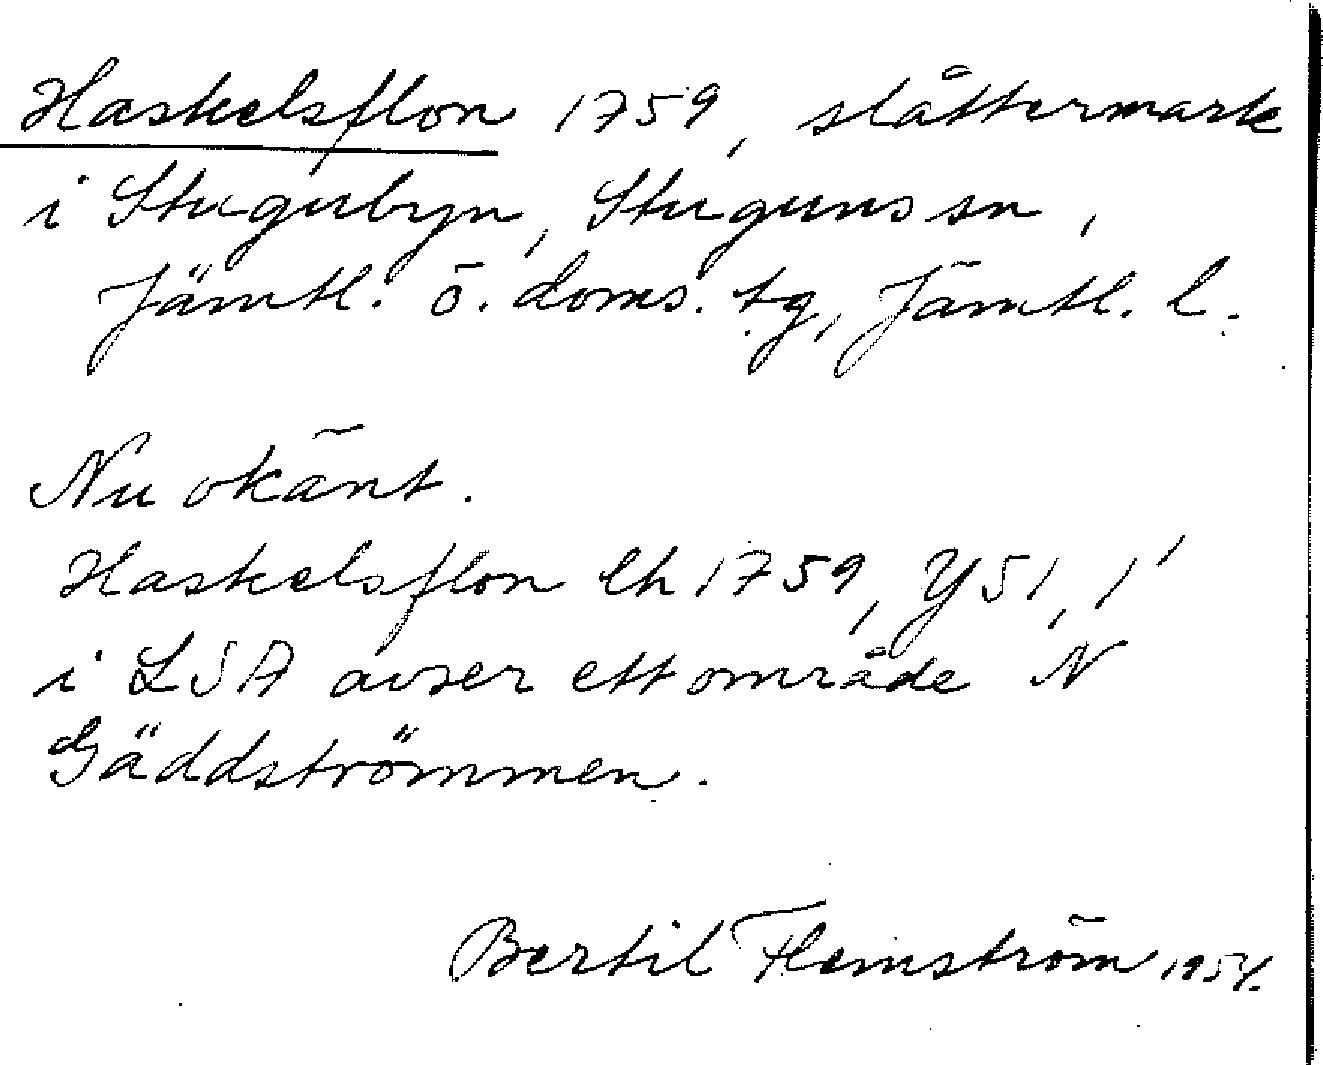 Haskelsflon 1759, slåttermark
i Stugubyn, Stuguns sn,
Jämtl. ö. doms. tg, Jämtl. l.
Nu okänt.
Haskelsflon lh 1759, Y51, 1'
i LSA avser ett område N
Gäddströmmen.
Bertil Flemström 1954.